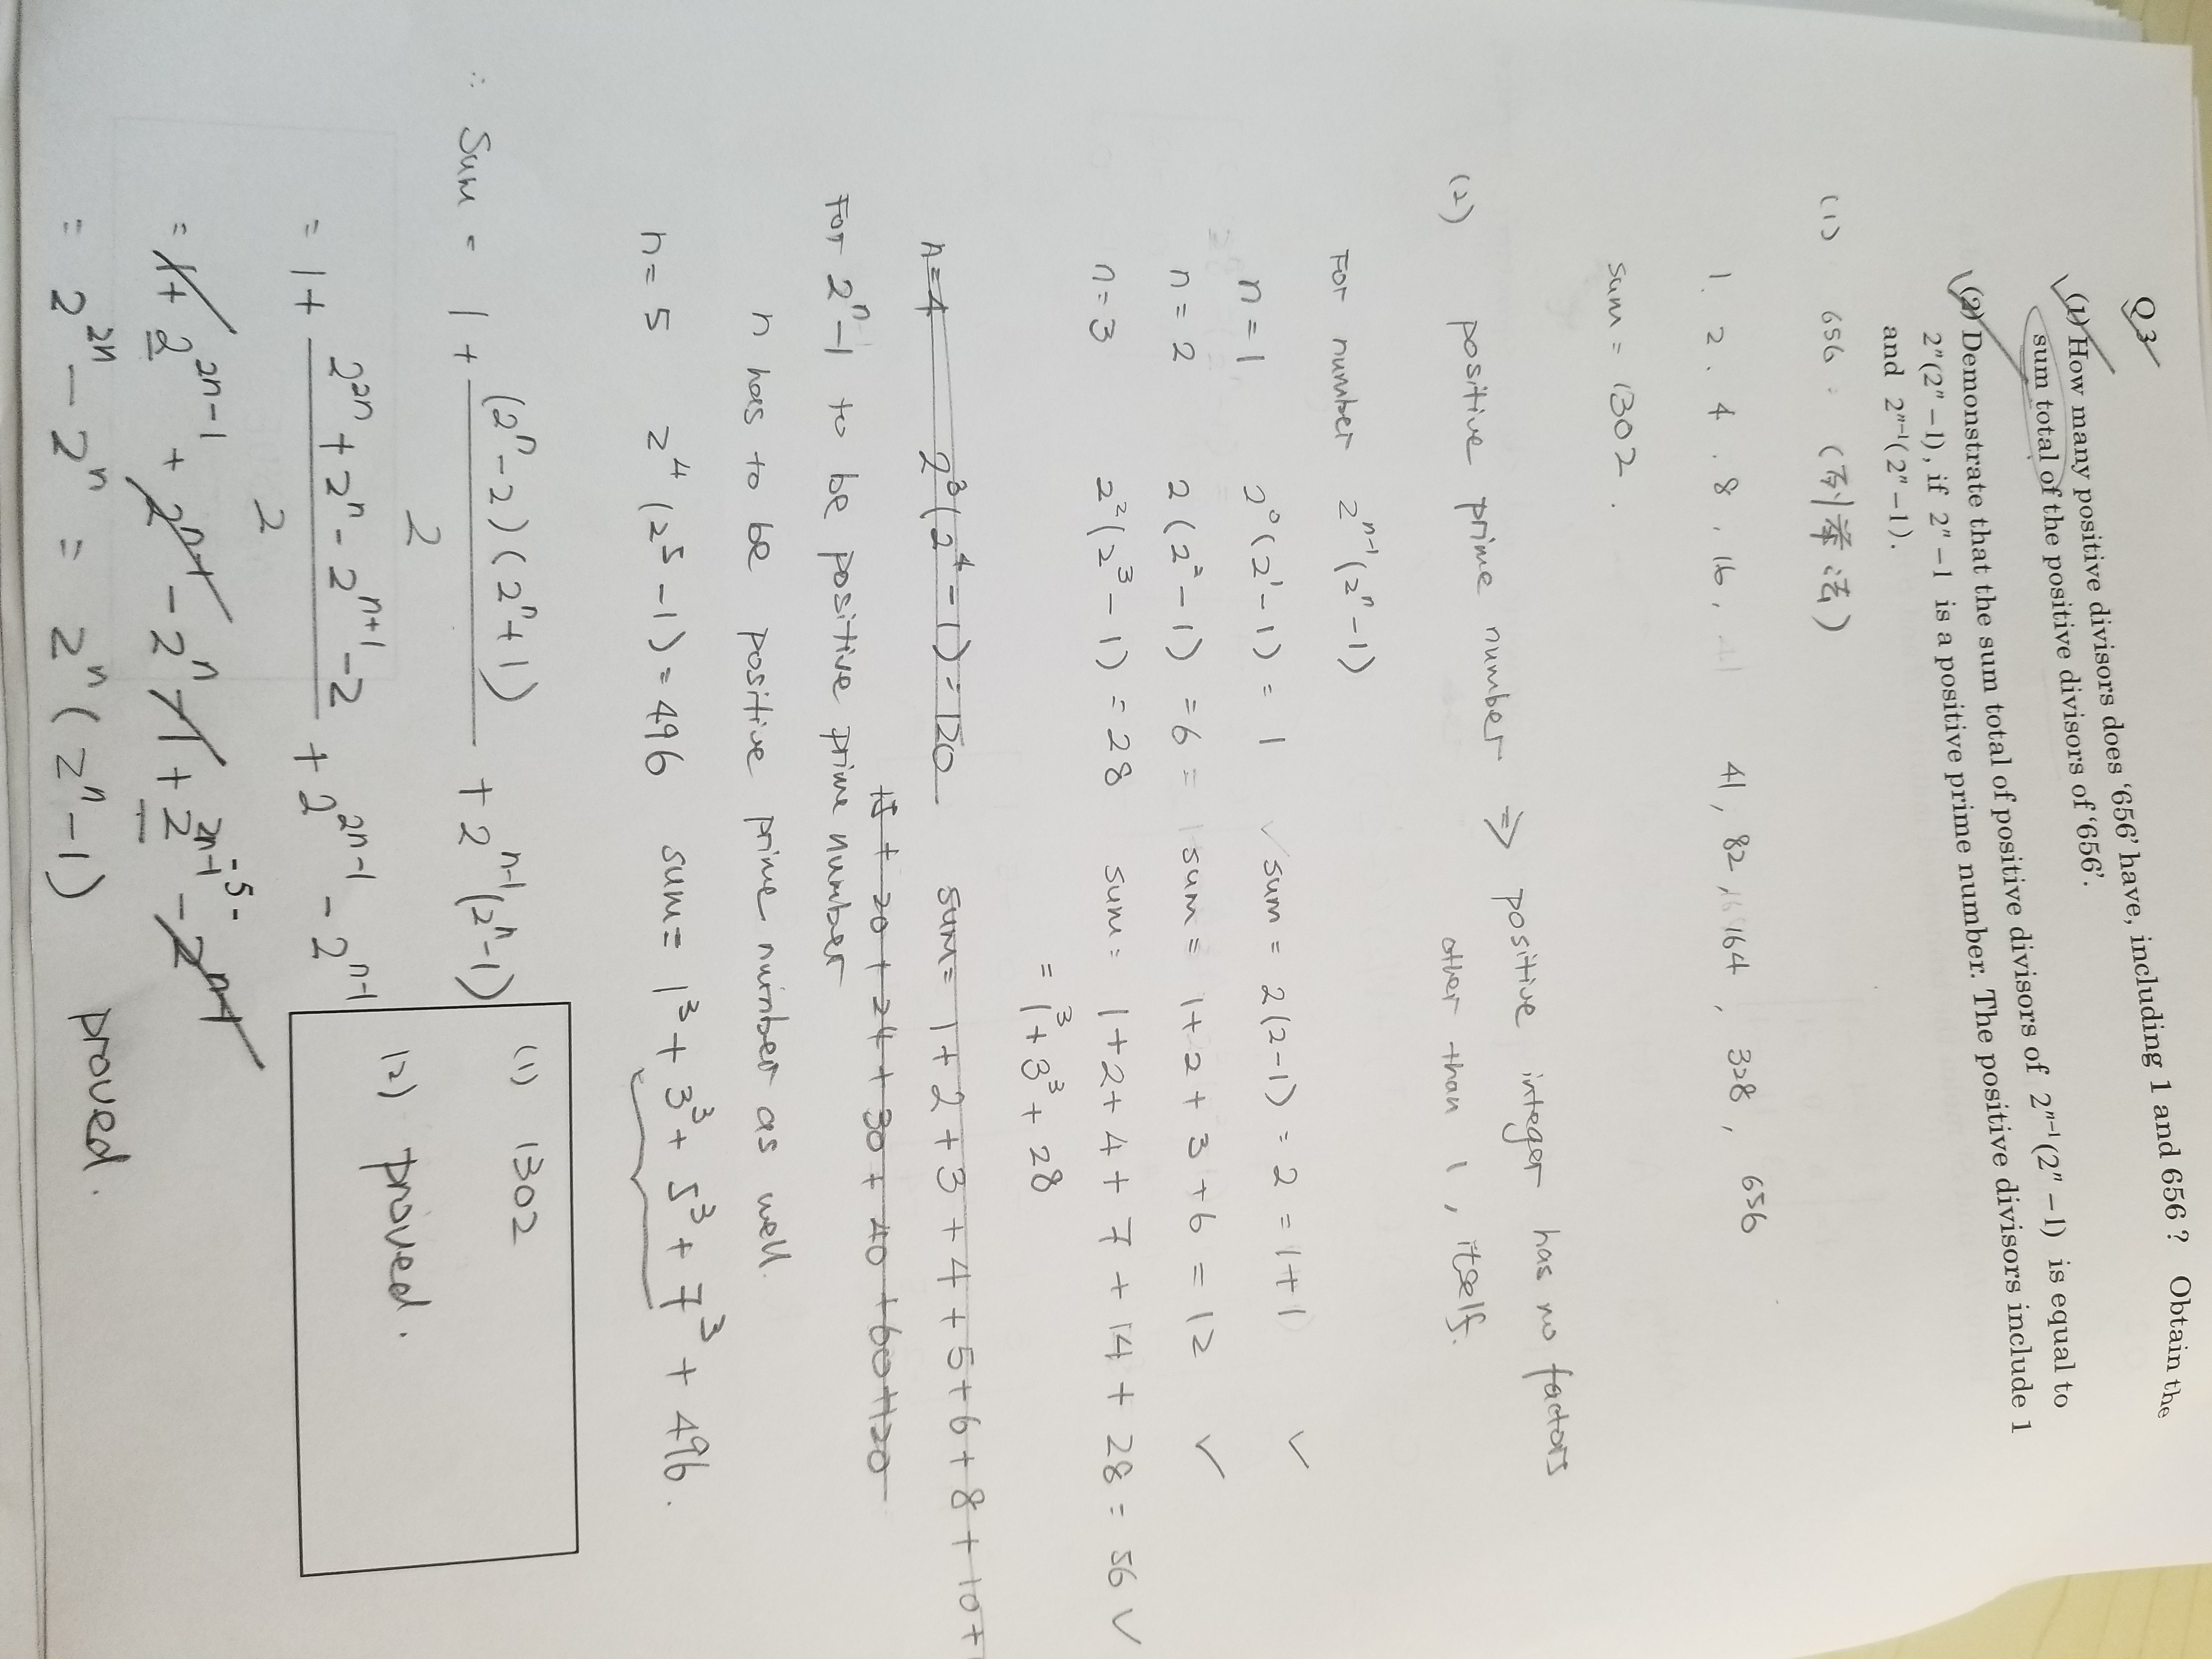 Q 3
(1) How many positive divisors does ‘656’ have, including 1 and 656 ? Obtain the
sum total of the positive divisors of ‘656’.
(2) Demonstrate that the sum total of positive divisors of 2^{n-1}(2^n − 1) is equal to
2^n(2^n − 1), if 2^n − 1 is a positive prime number. The positive divisors include 1
and 2^{n-1}(2^n − 1).
(1) 656 : (列举法)
1. 2 . 4 . 8 , 16 , 41 , 82 , 164 , 328 , 656
sum = 1302 .
(2) positive prime number ⇒ positive integer has no factors
other than 1 , itself.
For number 2^{n-1}(2^n − 1)
n = 1 2^0(2^1 − 1) = 1 ✓ sum = 2(2−1) = 2 = 1+1 ✓
n = 2 2(2^2 − 1) = 6 = sum = 1+2+3+6 = 12 ✓
n = 3 2^2(2^3 − 1) = 28 sum = 1+2+4+7+14+28 = 56 ✓
= 1^3 + 3^3 + 28
n = 4 2^3(2^4 − 1) = 120 sum = 1+2+3+4+5+6+8+10+
15 + 20 + 24 + 30 + 40 + 60 + 120
For 2^n − 1 to be positive prime number
n has to be positive prime number as well.
n = 5 2^4(2^5 − 1) = 496 sum = 1^3 + 3^3 + 5^3 + 7^3 + 496 .
∴ Sum = 1 + (2^n − 2)(2^n + 1)/2 + 2^{n-1}(2^n − 1)
= 1 + (2^{2n} + 2^n − 2^{n+1} − 2)/2 + 2^{2n-1} − 2^{n-1}
= 1 + 2^{2n-1} + 2^{n-1} − 2^n − 1 + 2^{2n-1} − 2^{n-1}
= 2^{2n} − 2^n = 2^n(2^n − 1) proved.
(1) 1302
(2) proved.
- 5 -